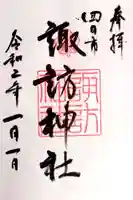 奉拝
四日市
諏訪神社
令和二年
一月一日